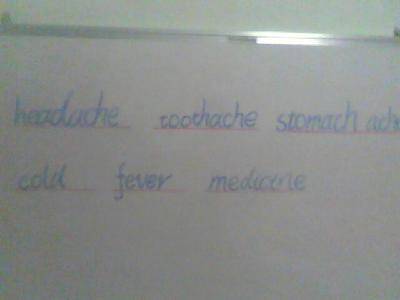 headache toothache stomach ache
cold fever medicine